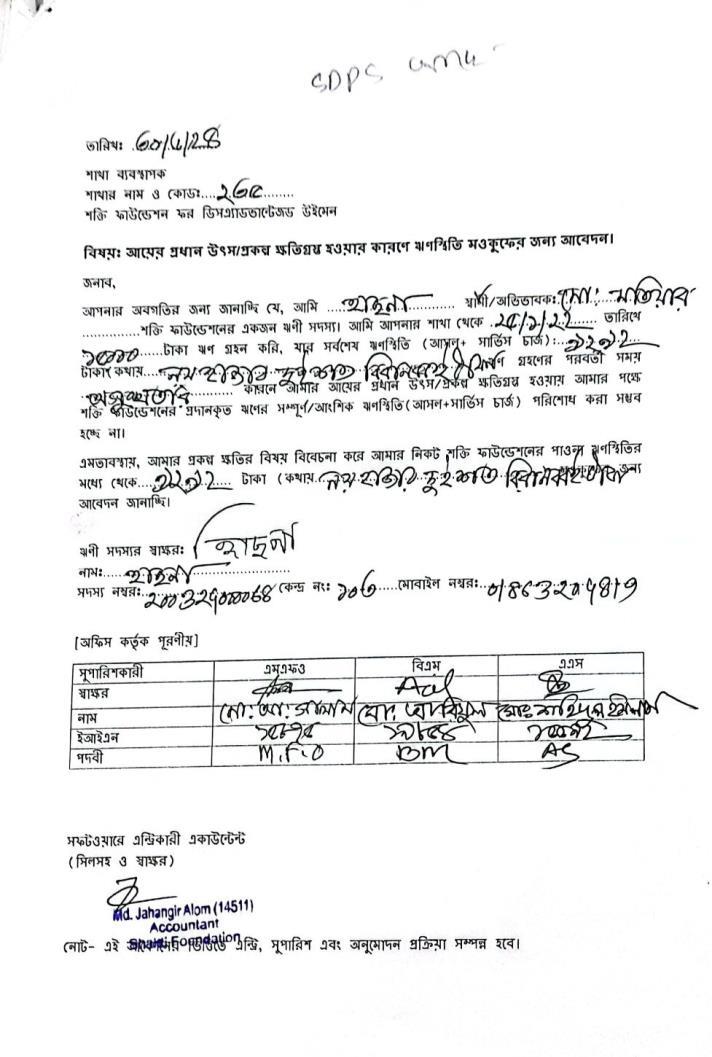 SDPS
তারিখঃ
শাখা ব্যবস্থাপক
শাখার নাম ও কোডঃ....২৬৫.........
শক্তি ফাউন্ডেশন ফর ডিসএ্যাডভান্টেজড উইমেন
বিষয়ঃ আয়ের প্রধান উৎস/প্রকল্প ক্ষতিগ্রস্থ হওয়ার কারণে ঋণস্থিতি মওকুফের জন্য আবেদন।
জনাব,
আপনার অবগতির জন্য জানাচ্ছি যে, আমি ....হাছনা.......... স্বামী/অভিভাবক: মো: মতিয়ার
.............শক্তি ফাউন্ডেশনের একজন ঋণী সদস্য। আমি আপনার শাখা থেকে তারিখে
টাকা ঋণ গ্রহন করি, যার সর্বশেষ ঋণস্থিতি (আসল+ সার্ভিস চার্জ):..৯২৯২....
টাকা(কথায়....নয় হাজার দুই শত বিরানব্বই টাকা ঋণ গ্রহণের পরবর্তী সময়
কারনে আমার আয়ের প্রধান উৎস/প্রকল্প ক্ষতিগ্রস্থ হওয়ায় আমার পক্ষে
শক্তি ফাউন্ডেশনের প্রদানকৃত ঋণের সম্পূর্ণ/আংশিক ঋণস্থিতি(আসল+সার্ভিস চার্জ) পরিশোধ করা সম্ভব
হচ্ছে না।
এমতাবস্থায়, আমার প্রকল্প ক্ষতির বিষয় বিবেচনা করে আমার নিকট শক্তি ফাউন্ডেশনের পাওনা ঋণস্থিতির
মধ্যে থেকে....৯২৯২.... টাকা (কথায়..নয় হাজার দুই শত বিরানব্বই টাকা জন্য
আবেদন জানাচ্ছি।
ঋণী সদস্যর স্বাক্ষরঃ হাছনা
নাম:....হাছনা.....................
সদস্য নম্বরঃ. কেন্দ্র নং: ১০৬.....মোবাইল নম্বরঃ..
[অফিস কর্তৃক পূরণীয়]
সুপারিশকারী এমএফও বিএম এএস
স্বাক্ষর
নাম মো: আ: সালাম
ইআইএন
পদবী M.F.O BM AS
সফটওয়ারে এন্ট্রিকারী একাউন্টেন্ট
(সিলসহ ও স্বাক্ষর)
Md. Jahangir Alom (14511)
Accountant
Shakti Foundation
নোট- এই এন্ট্রি, সুপারিশ এবং অনুমোদন প্রক্রিয়া সম্পন্ন হবে।